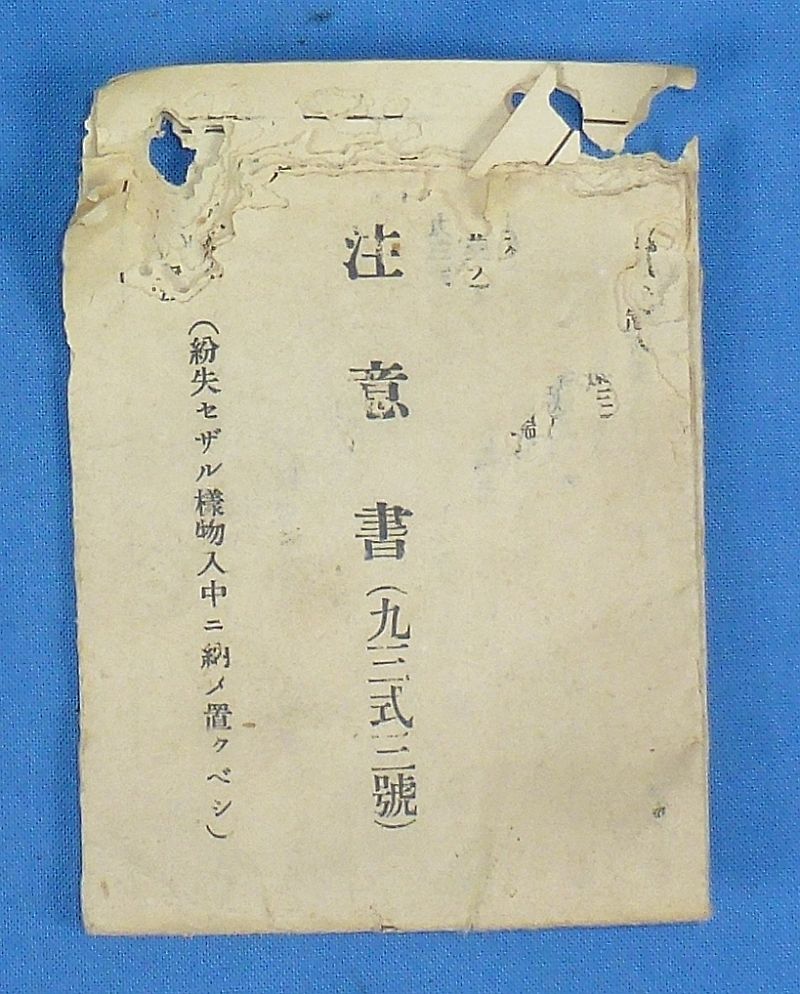 注意書(九三式三號)
(紛失セザル樣物入中ニ納メ置クベシ)